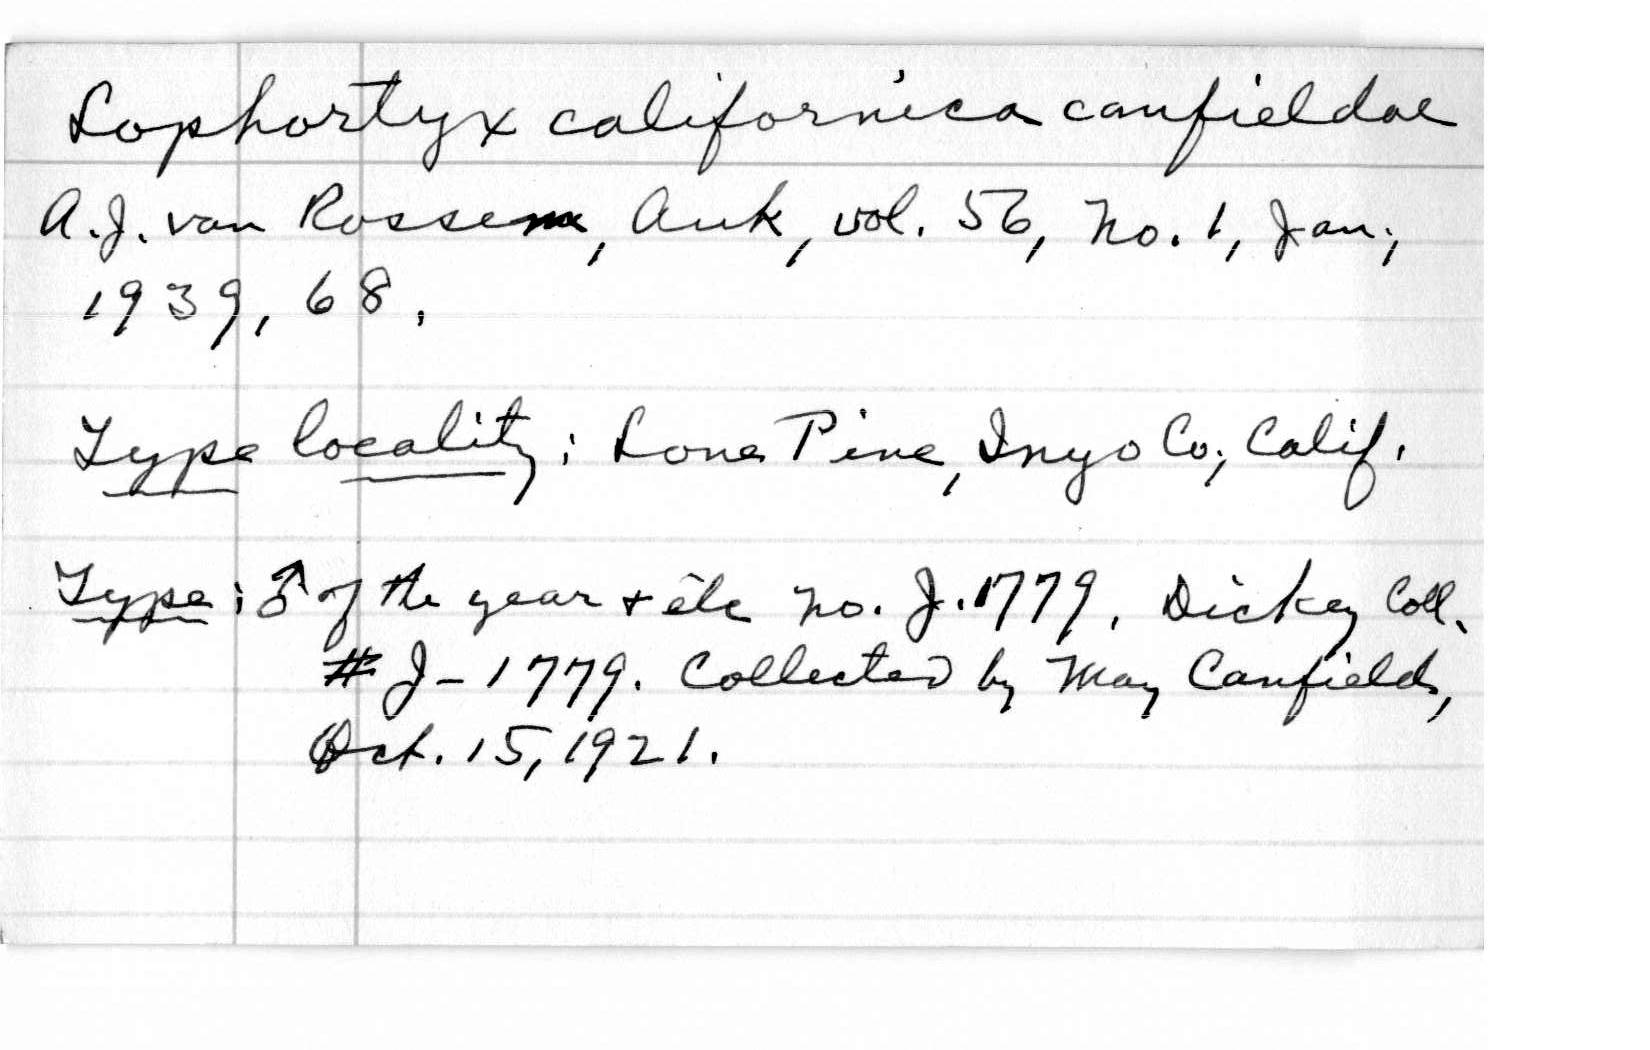 Lophortyx californica canfieldae
A.J. van Rossem, Auk, vol. 56, No. 1, Jan.,
1939, 68.
Type locality: Lone Pine, Inyo Co., Calif.
Type: ♂ of the year + etc No. J.1779, Dickey Coll.
# J-1779. Collected by May Canfield,
Oct. 15, 1921.